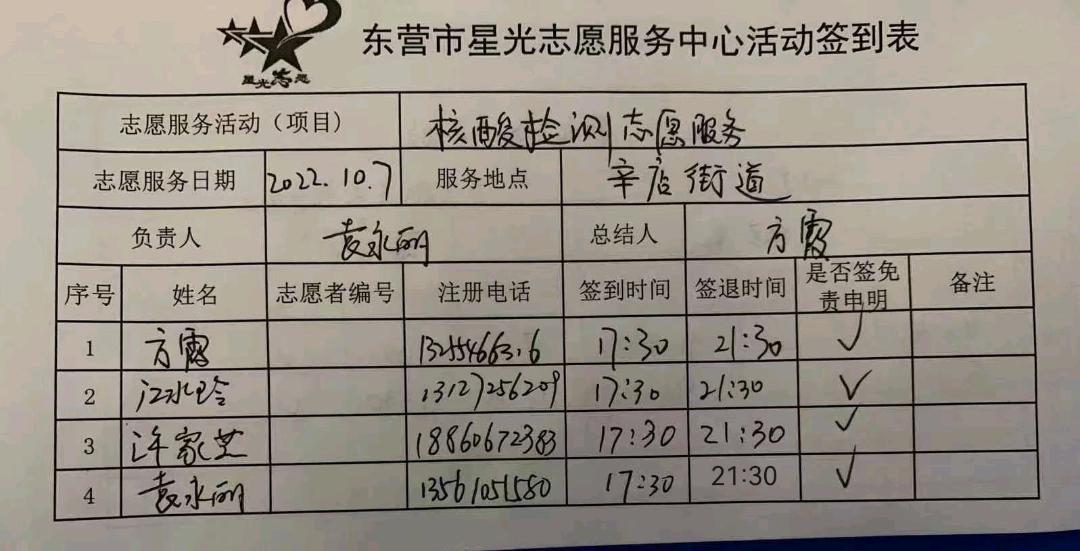 星光志愿
东营市星光志愿服务中心活动签到表
志愿服务活动（项目） 核酸检测志愿服务
志愿服务日期 2022.10.7 服务地点 辛店街道
负责人 袁永丽 总结人 方霞
序号 姓名 志愿者编号 注册电话 签到时间 签退时间 是否签免责申明 备注
1 方霞 17:30 21:30 ✓
2 13127256209 17:30 21:30 ✓
3 许家芝 18860672383 17:30 21:30 ✓
4 袁永丽 13561051580 17:30 21:30 ✓